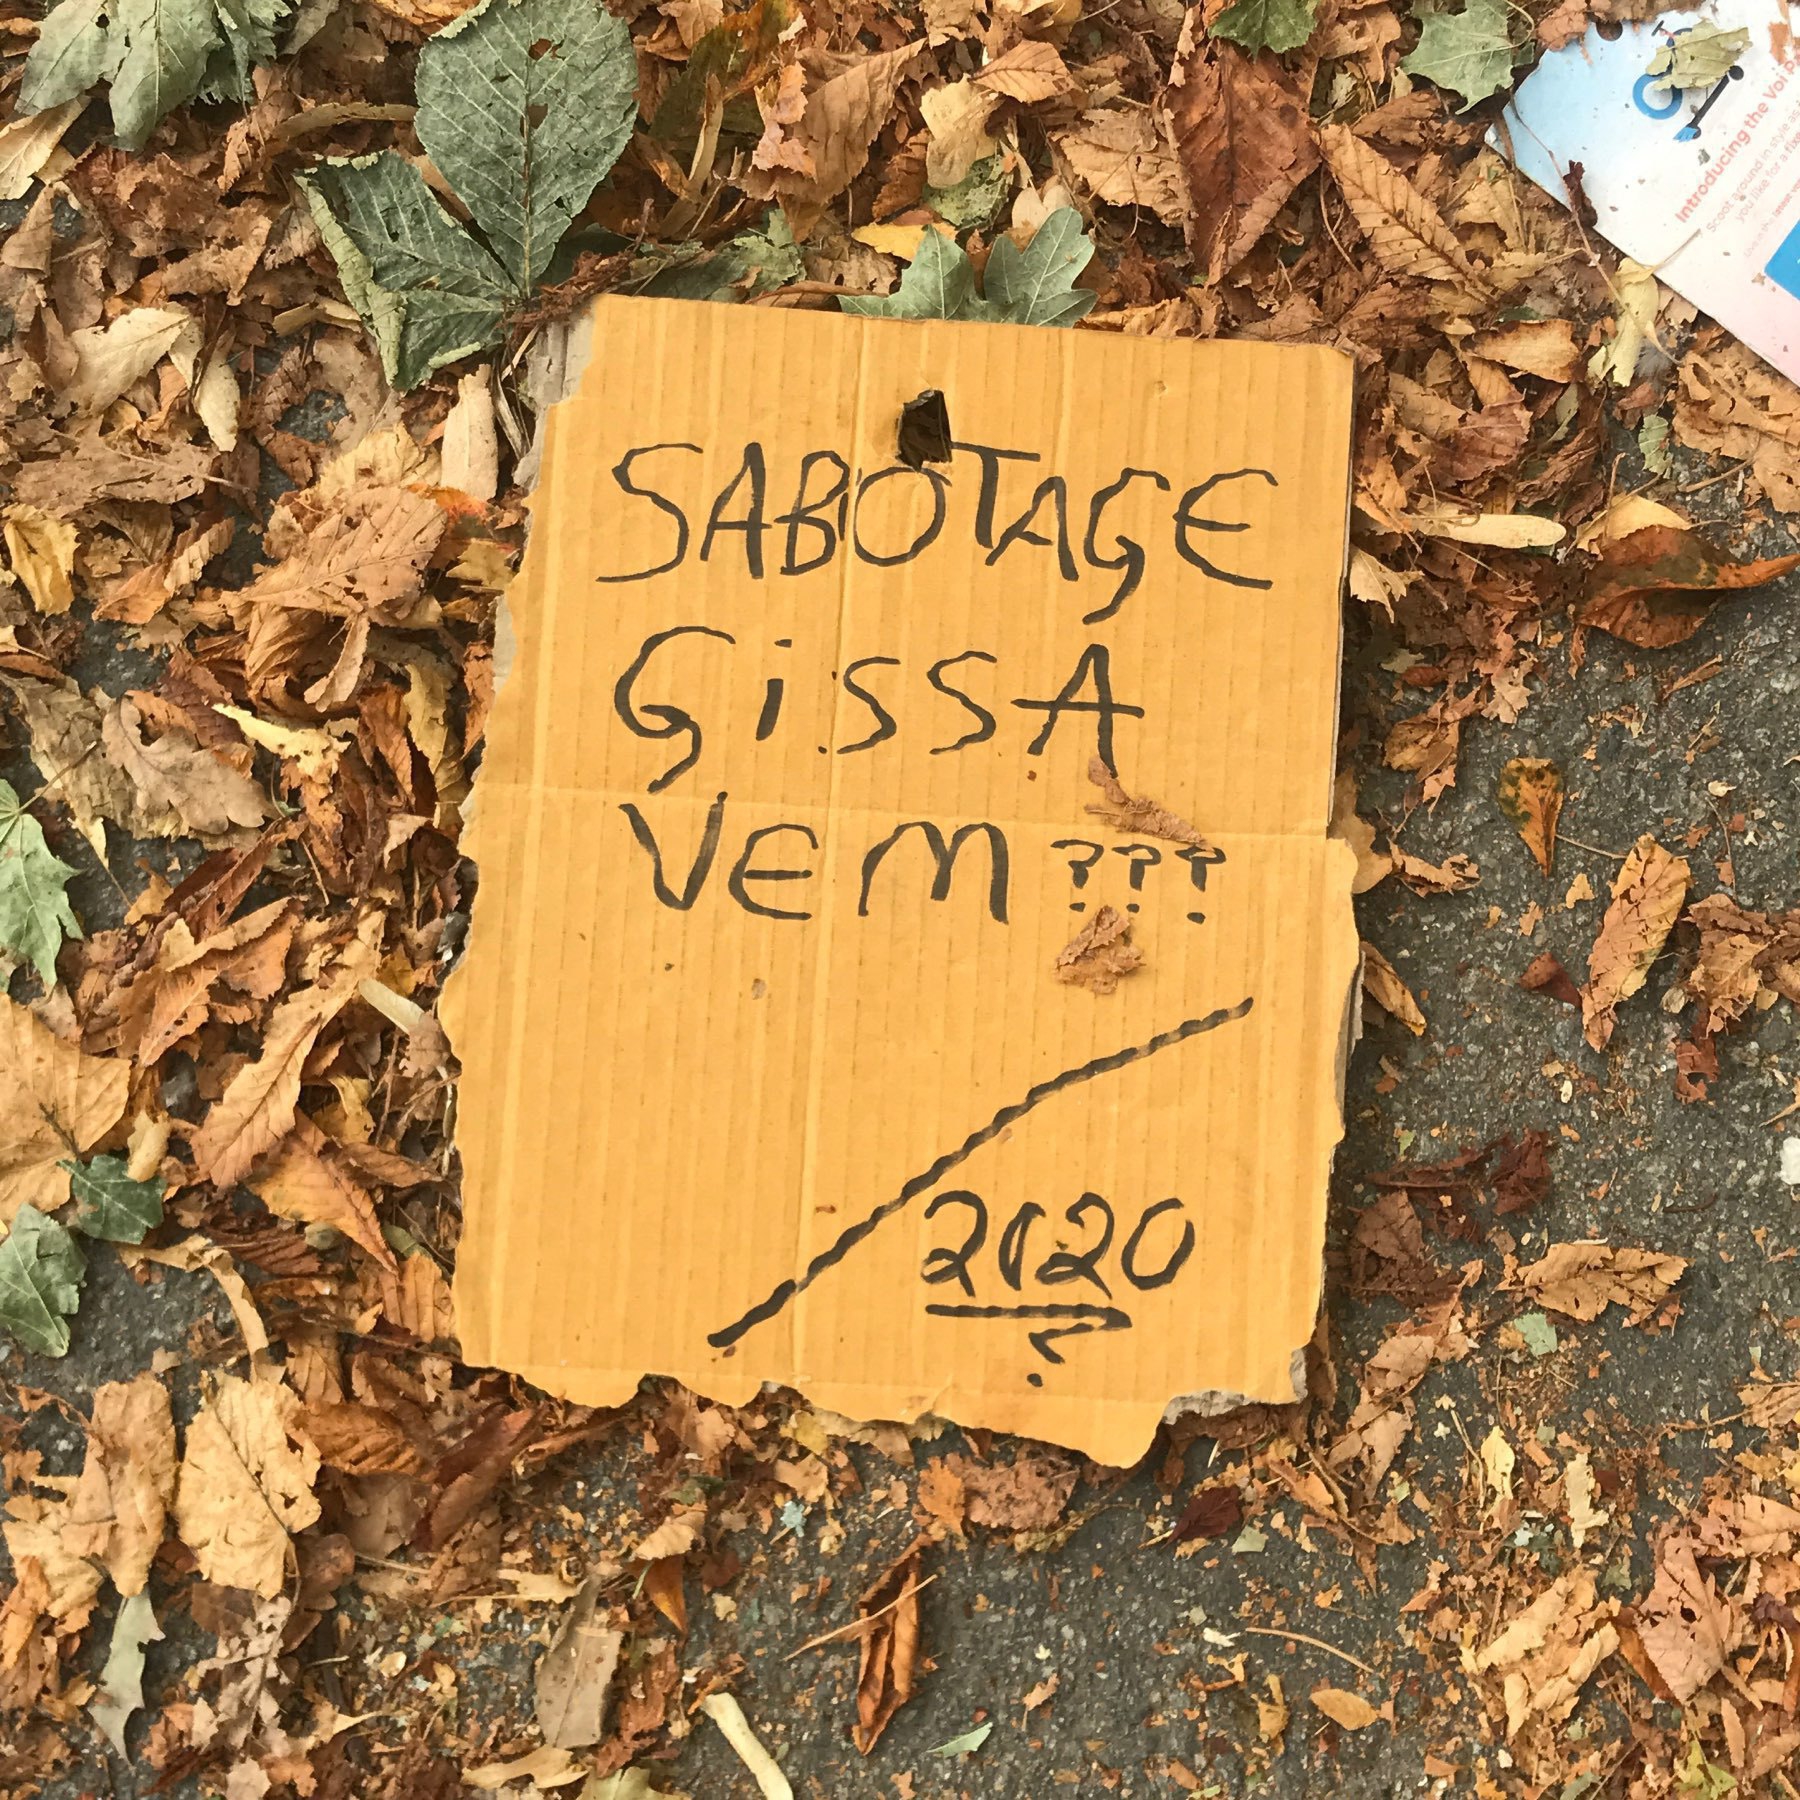 SABOTAGE
GiSSA
VEM ???
2020
?
Introducing the Voi Pa
Scoot around in style as
you like for a fixe